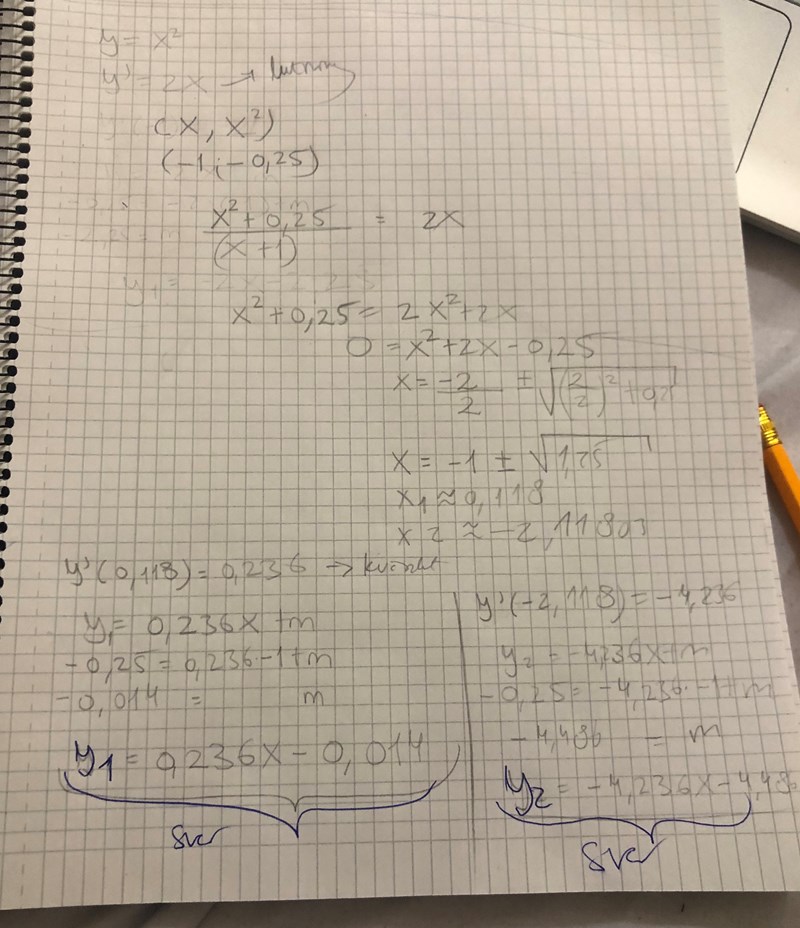 y = x²
y' = 2x →
(x, x²)
(-1; -0,25)
x² + 0,25 / (x + 1) = 2x
x² + 0,25 = 2x² + 2x
0 = x² + 2x - 0,25
x = -2/2 ± √((2/2)² + 0,2
x = -1 ± √1,25
x1 ≈ 0,118
x2 ≈ -2,1180
y'(0,118) = 0,236 →
y1 = 0,236x + m
-0,25 = 0,236·-1 + m
-0,014 = m
y1 = 0,236x - 0,014
Svar
y'(-2,118) = -4,236
y2 = -4,236x + m
-0,25 = -4,236·-1 + m
-4,486 = m
y2 = -4,236x - 4,486
Svar